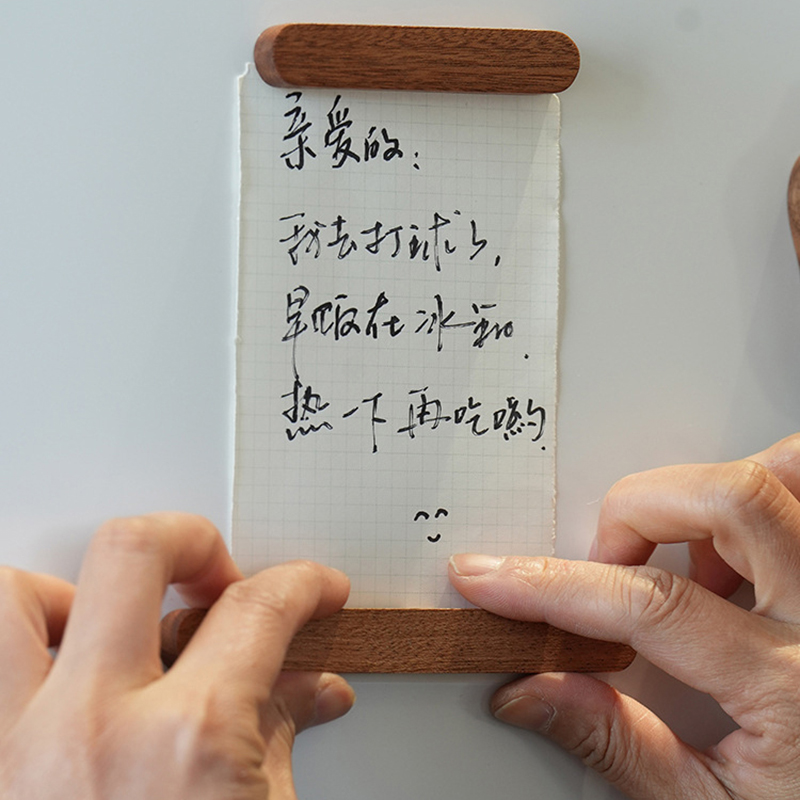 亲爱的：
我去打球了，
早饭在冰箱．
热一下再吃哟．